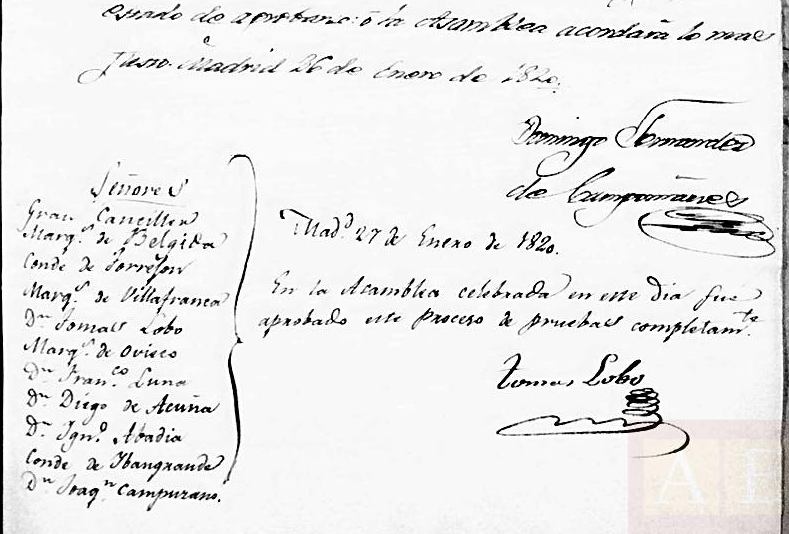 estado de aprobarse: ó la Asamblea acordará lo mas
justo. Madrid 26 de Enero de 1820.
Domingo Fernandez
de Campomanes
Señores
Gran Canciller
Marqs. de Belgida
Conde de Torrejon
Marqs. de Villafranca
Dn. Tomas Lobo
Marqs. de Ovieco
Dn. Franco. Luna
Dn. Diego de Acuña
Dn. Igno. Abadia
Conde de Ibangrande
Dn. Joaqn. Campuzano.
Madd. 27 de Enero de 1820.
En la Asamblea celebrada en este dia fué
aprobado este proceso de pruebas completamte.
Tomas Lobo